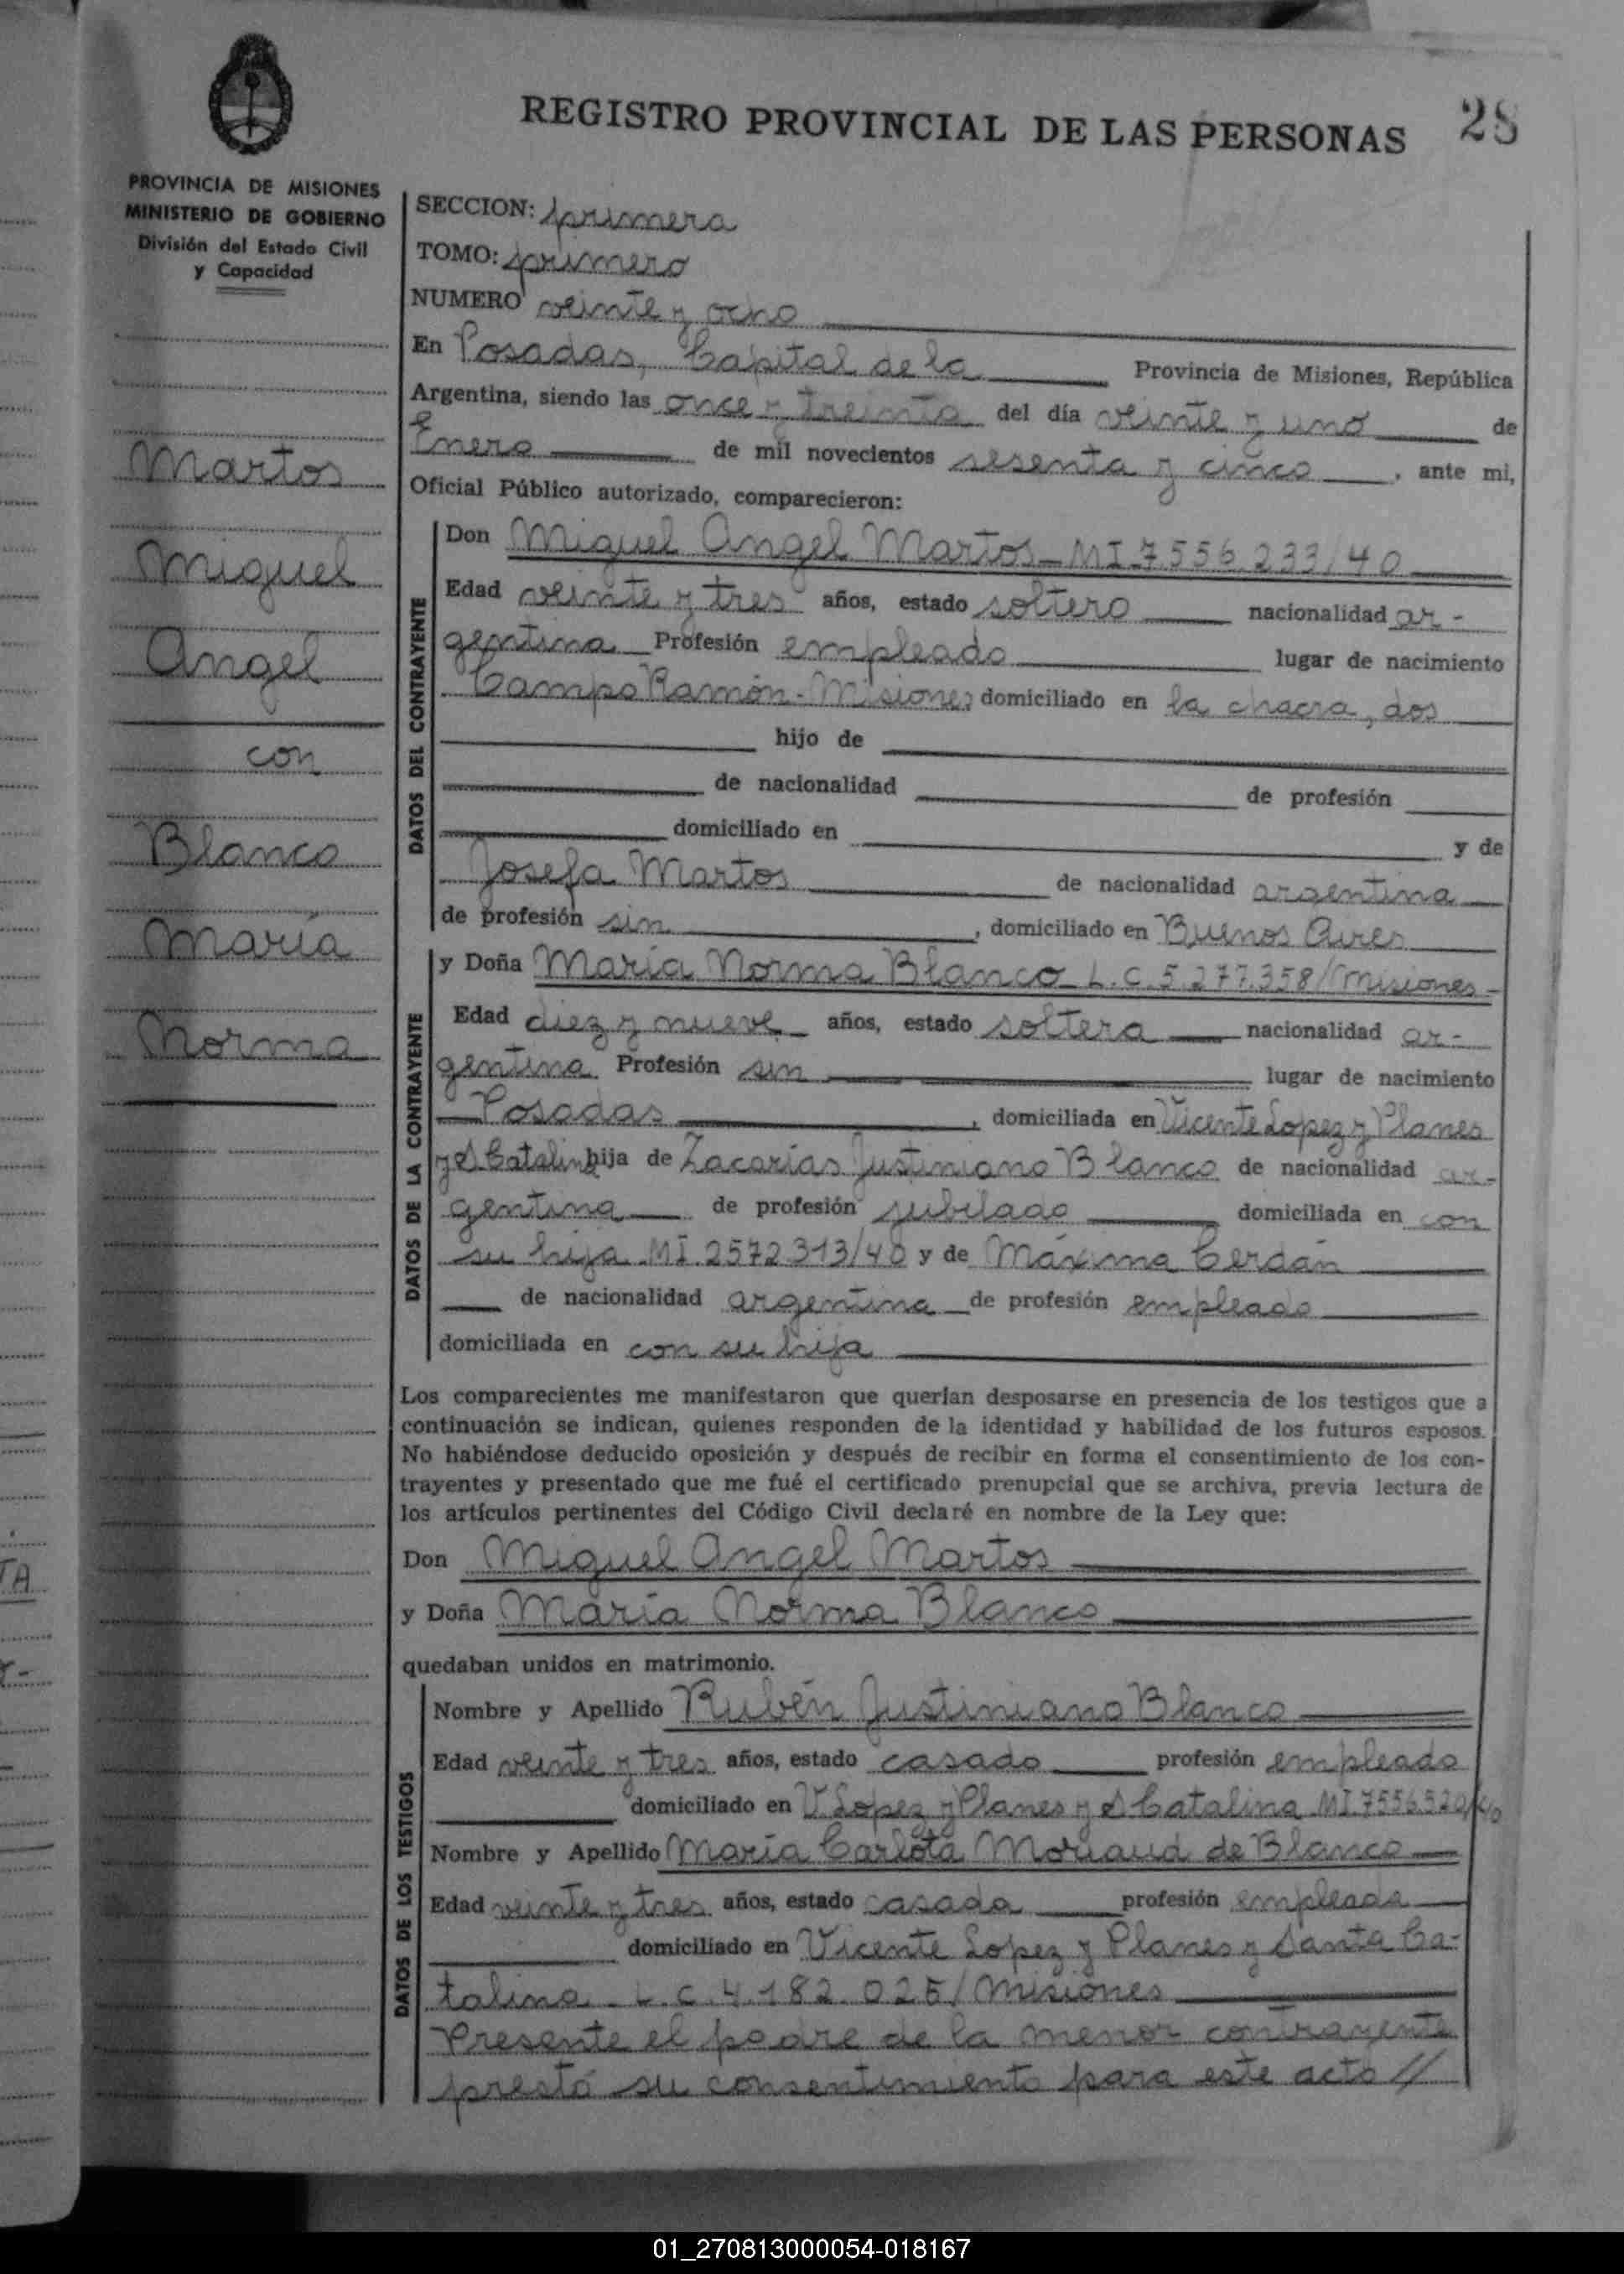 REGISTRO PROVINCIAL DE LAS PERSONAS 28
PROVINCIA DE MISIONES
MINISTERIO DE GOBIERNO
División del Estado Civil
y Capacidad
Martos
Miguel
Angel
con
Blanco
María
Norma
SECCION: primera
TOMO: primero
NUMERO veinte y ocho
En Posadas, Capital de la Provincia de Misiones, República
Argentina, siendo las once y treinta del día veinte y uno de
Enero de mil novecientos sesenta y cinco, ante mi,
Oficial Público autorizado, comparecieron:
DATOS DEL CONTRAYENTE
Don Miguel Angel Martos - MI 7.556.233/40
Edad veinte y tres años, estado soltero nacionalidad ar-
gentina Profesión empleado lugar de nacimiento
Campo Ramón - Misiones domiciliado en la chacra, dos
hijo de
de nacionalidad de profesión
domiciliado en y de
Josefa Martos de nacionalidad argentina
de profesión sin, domiciliado en Buenos Aires
DATOS DE LA CONTRAYENTE
y Doña María Norma Blanco - L.C. 5.277.358/Misiones -
Edad diez y nueve años, estado soltera nacionalidad ar-
gentina Profesión sin lugar de nacimiento
Posadas, domiciliada en Vicente Lopez y Planes
y S Catalina hija de Zacarías Justiniano Blanco de nacionalidad ar-
gentina de profesión jubilado domiciliada en con
su hija MI. 2572313/40 y de Máxima Cerdán
de nacionalidad argentina de profesión empleada
domiciliada en con su hija
Los comparecientes me manifestaron que querían desposarse en presencia de los testigos que a
continuación se indican, quienes responden de la identidad y habilidad de los futuros esposos.
No habiéndose deducido oposición y después de recibir en forma el consentimiento de los con-
trayentes y presentado que me fué el certificado prenupcial que se archiva, previa lectura de
los artículos pertinentes del Código Civil declaré en nombre de la Ley que:
Don Miguel Angel Martos
y Doña María Norma Blanco
quedaban unidos en matrimonio.
DATOS DE LOS TESTIGOS
Nombre y Apellido Rubén Justiniano Blanco
Edad veinte y tres años, estado casado profesión empleado
domiciliado en V. Lopez y Planes y S Catalina MI. 7556520/40
Nombre y Apellido María Carlota Moriaud de Blanco
Edad veinte y tres años, estado casada profesión empleada
domiciliado en Vicente Lopez y Planes y Santa Ca-
talina - L.C. 4.182.025/Misiones
Presente el padre de la menor contrayente
prestó su consentimiento para este acto //
TA
r-
01_270813000054-018167